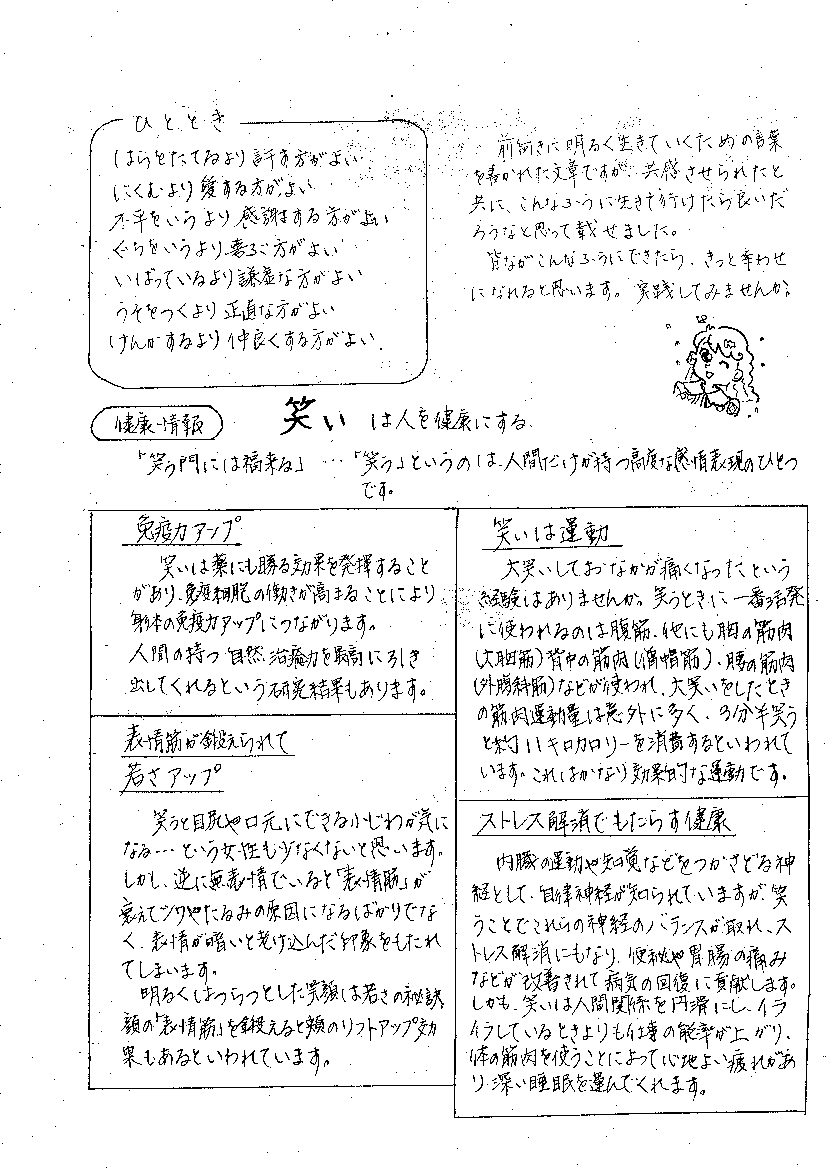 ひととき
はらをたてるより許す方がよい
にくむより愛する方がよい
不平をいうより感謝する方が良い
ぐちをいうより喜ぶ方がよい
いばっているより謙虚な方がよい
うそをつくより正直な方がよい
けんかするより仲良くする方がよい.
前向きに明るく生きていくための言葉
を書かれた文章ですが、共感させられたと
共に、こんなふうに生きて行けたら良いだ
ろうなと思って載せました。
皆ながこんなふうにできたら、きっと幸わせ
になれると思います。実践してみませんか。
健康情報
笑い は人を健康にする.
「笑う門には福来る」…「笑う」というのは、人間だけが持つ高度な感情表現のひとつ
です。
免疫力アップ
笑いは薬にも勝る効果を発揮すること
があり、免疫細胞の働きが高まることにより
身体の免疫力アップにつながります。
人間の持つ自然治癒力を最高に引き
出してくれるという研究結果もあります。
表情筋が鍛えられて
若さアップ
笑うと目尻や口元にできる小じわが気に
なる…という女性も少なくないと思います。
しかし、逆に無表情でいると「表情筋」が
衰えてシワやたるみの原因になるばかりでな
く、表情が暗いと老け込んだ印象をもたれ
てしまいます。
明るくはつらつとした笑顔は若さの秘訣
顔の「表情筋」を鍛えると頬のリフトアップ効
果もあるといわれています。
笑いは運動
大笑いしておなかが痛くなったという
経験はありませんか。笑うときに一番活発
に使われるのは腹筋、他にも胸の筋肉
(大胸筋)背中の筋肉(僧帽筋)、腰の筋肉
(外腹斜筋)などが使われ、大笑いをしたとき
の筋肉運動量は意外に多く、3分半笑う
と約11キロカロリーを消費するといわれて
います。これはかなり効果的な運動です。
ストレス解消でもたらす健康
内臓の運動や知覚などをつかさどる神
経として、自律神経が知られていますが、笑
うことでこれらの神経のバランスが取れ、ス
トレス解消にもなり、便秘や胃腸の痛み
などが改善されて病気の回復に貢献します。
しかも、笑いは人間関係を円滑にし、イラ
イラしているときよりも仕事の能率が上がり、
体の筋肉を使うことによって心地よい疲れがあ
り、深い睡眠を運んでくれます。